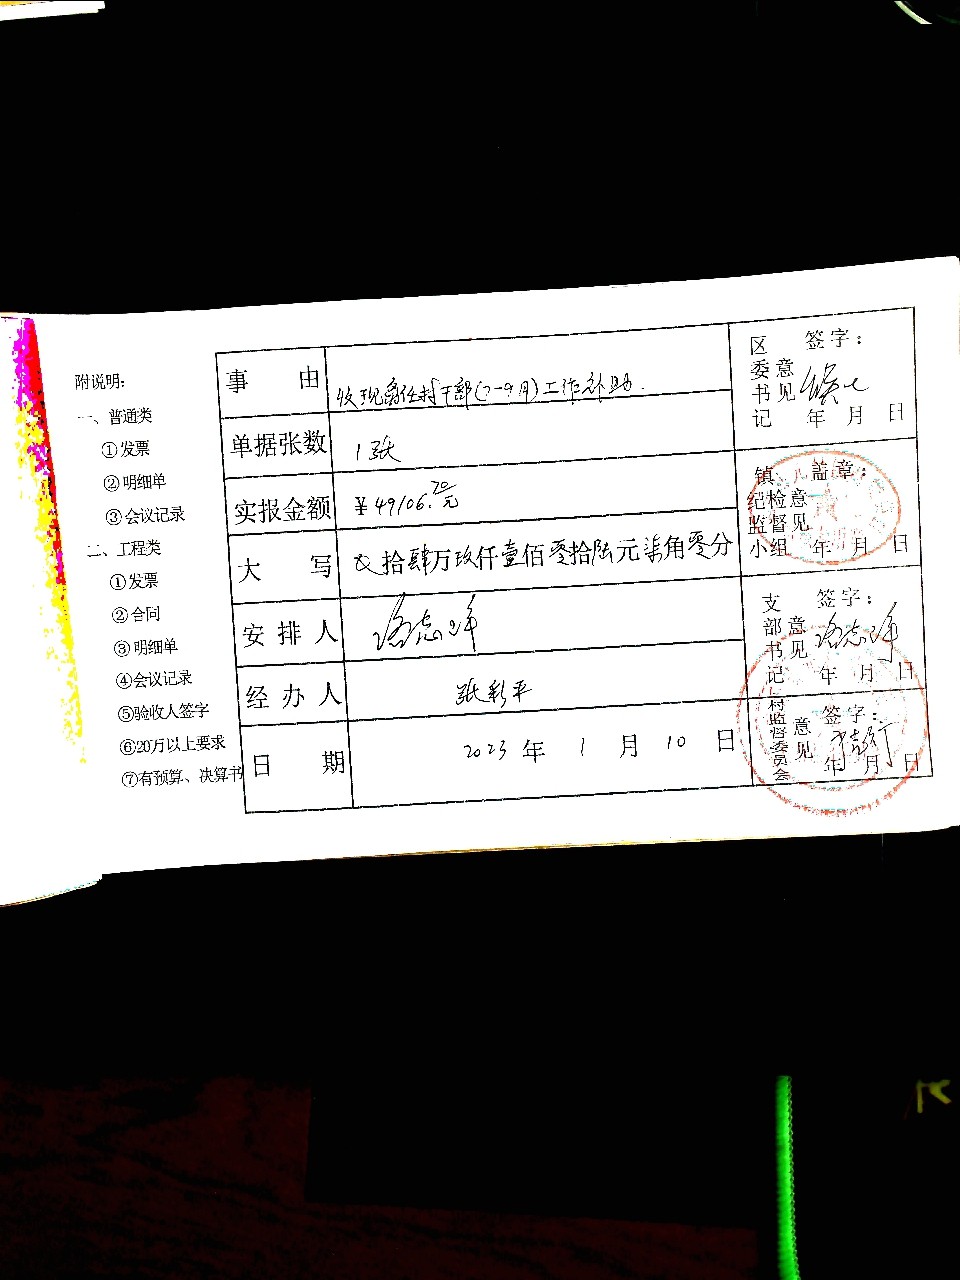 附说明：
一、普通类
①发票
②明细单
③会议记录
二、工程类
①发票
②合同
③明细单
④会议记录
⑤验收人签字
⑥20万以上要求
⑦有预算、决算书
事由 收现离任村干部(7-9月)工作补助.
单据张数 1张
实报金额 ¥49106.70元
大写 拾肆万玖仟壹佰零拾陆元柒角零分
安排人
经办人 张彩平
日期 2023年1月10日
区委书记意见 签字：
年月日
镇纪检监督小组意见 盖章：
年月日
支部书记意见 签字：
年月日
村监督委员会意见 签字：
年月日